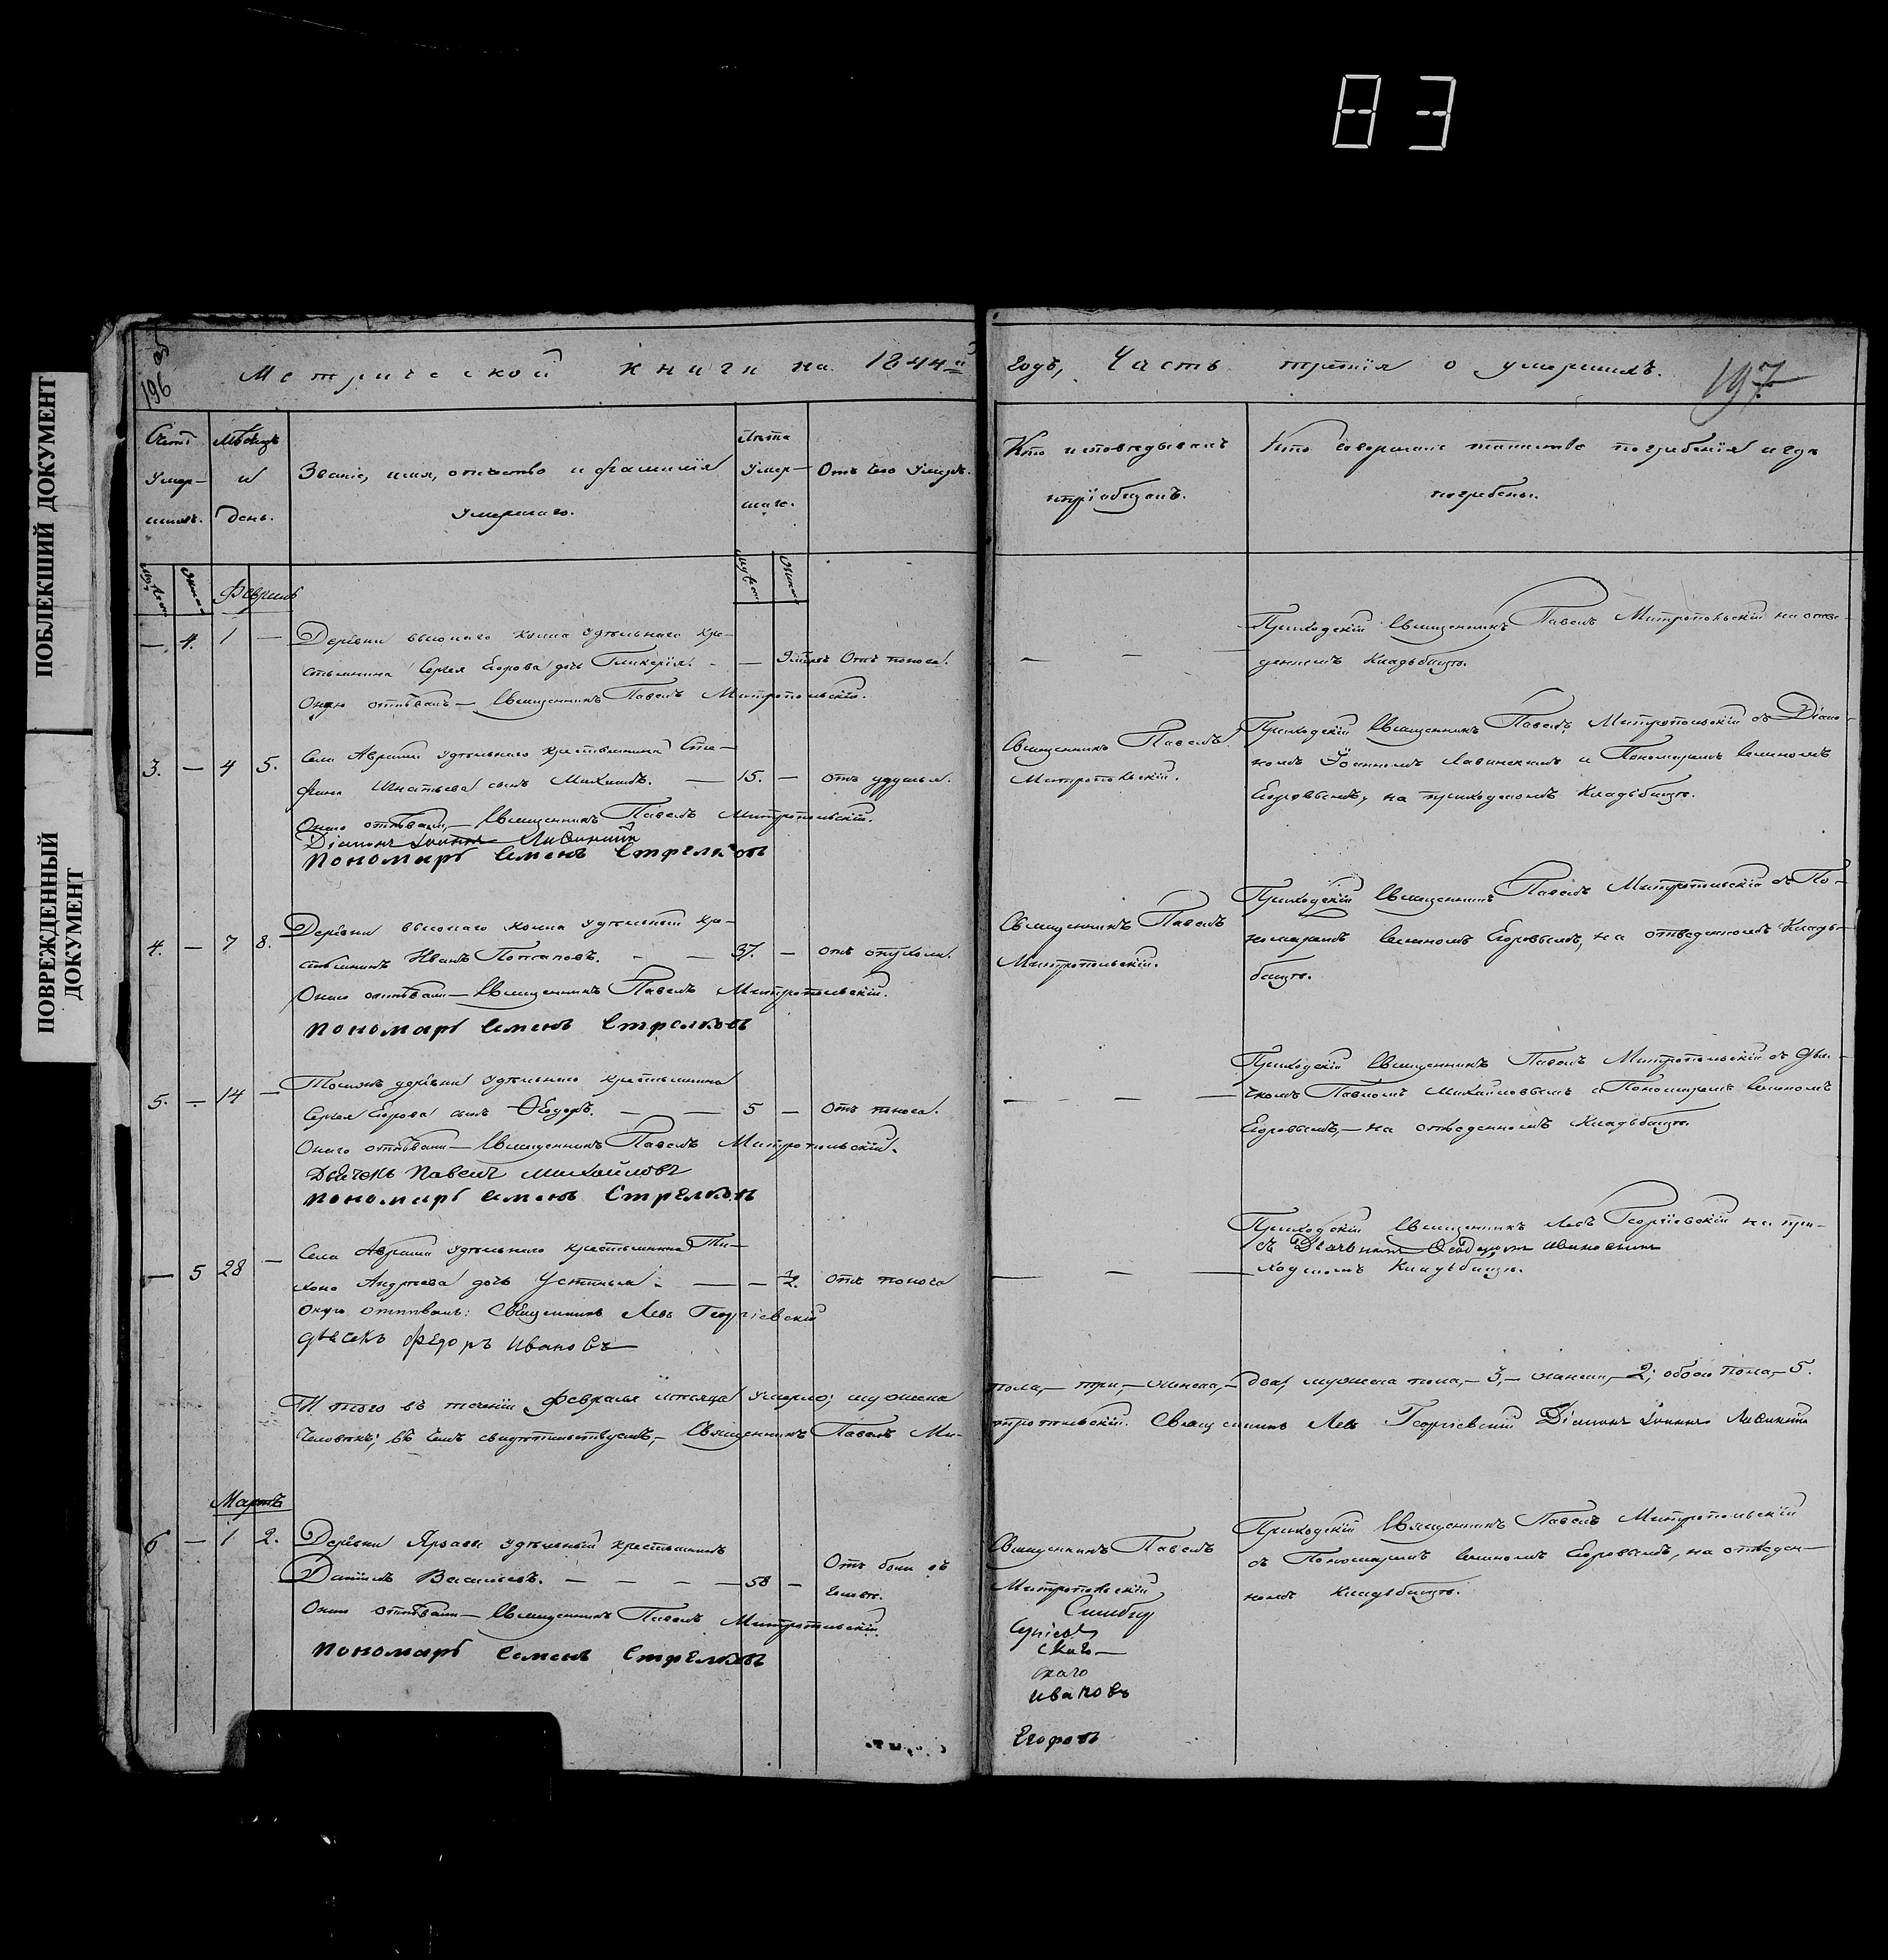 83
ПОБЛЕКШИЙ ДОКУМЕНТ
ПОВРЕЖДЕННЫЙ
ДОКУМЕНТ
196
Метрической книги на 1844й
годъ, Часть третія о умершихъ.
197
Счетъ
умер-
шихъ.
Мѣсяцъ
и
день.
Званіе, имя, отчество и фамилія
умершаго.
Лѣта
умер-
шаго.
Отъ чего умеръ.
Кто исповѣдывалъ
и пріобщалъ.
Кто совершалъ таинство погребенія и гдѣ
погребены.
Февраль
— 4. 1 —
Деревни удѣльнаго кре-
стьянина Сергея Егорова дочь Гликерія. — Отъ поноса.
Оную отпѣвалъ — Священникъ Павелъ Митропольскій.
Приходскій Священникъ Павелъ Митропольскій на отве-
денномъ Кладбищѣ.
3. — 4 5.
Села Аврали удѣльнаго крестьянина Сте-
фана Игнатьева сынъ Михаилъ. — 15. — отъ удушья.
Онаго отпѣвали, — Священникъ Павелъ Митропольскій.
Діаконъ Іоаннъ Лавинскій
Пономарь Семенъ Стрелковъ
Священникъ Павелъ
Митропольскій.
Приходскій Священникъ Павелъ Митропольскій съ Діако-
номъ Іоанномъ Лавинскимъ и Пономаремъ Семеномъ
Егоровымъ, на приходскомъ Кладбищѣ.
4. — 7 8.
Деревни удѣльный кре-
стьянинъ Иванъ Потаповъ. — — 37. — отъ опухоли.
Онаго отпѣвали — Священникъ Павелъ Митропольскій.
Пономарь Семенъ Стрелковъ
Священникъ Павелъ
Митропольскій.
Приходскій Священникъ Павелъ Митропольскій съ По-
номаремъ Семеномъ Егоровымъ, на отведенномъ Кладь-
бищѣ.
5. — 14 —
Тоежъ деревни удѣльнаго крестьянина
Сергея Егорова сынъ Ѳеодоръ. — — 5 — Отъ поноса.
Онаго отпѣвали — Священникъ Павелъ Митропольскій.
Дьячекъ Павелъ Михайловъ
Пономарь Семенъ Стрелковъ
Приходскій Священникъ Павелъ Митропольскій съ Дья-
чкомъ Павломъ Михайловымъ и Пономаремъ Семеномъ
Егоровымъ, — на отведенномъ Кладбищѣ.
— 5 28 —
Села Аврали удѣльнаго крестьянина Ти-
хона Андреева дочь Устинья. — — отъ поноса
Оную отпѣвалъ: Священникъ Левъ Георгіевскій
дьячекъ Федоръ Ивановъ
Приходскій Священникъ Левъ Георгіевскій на при-
съ Дьячкомъ Ѳеодоромъ Ивановымъ
ходскомъ Кладбищѣ.
И того въ теченіи Февраля мѣсяца умерло; мужеска
пола, — три, — женска, — два, мужеска пола, — 3, — женска, — 2; обоего пола, — 5.
человѣкъ; въ чемъ свидѣтельствуемъ, — Священникъ Павелъ Ми-
тропольскій. Священникъ Левъ Георгіевскій Діаконъ Іоаннъ Лавинскій
Мартъ
6 — 1 2.
Деревни удѣльный крестьянинъ
Даніилъ Васильевъ. — — — — 58 —
Отъ боли въ
Онаго отпѣвали — Священникъ Павелъ Митропольскій
Пономарь Семенъ Стрелковъ
Священникъ Павелъ
Митропольскій
Симбир
скаго
Ивановъ
Егоровъ
Приходскій Священникъ Павелъ Митропольскій
съ Пономаремъ Семеномъ Егоровымъ, на отведен-
номъ Кладбищѣ.